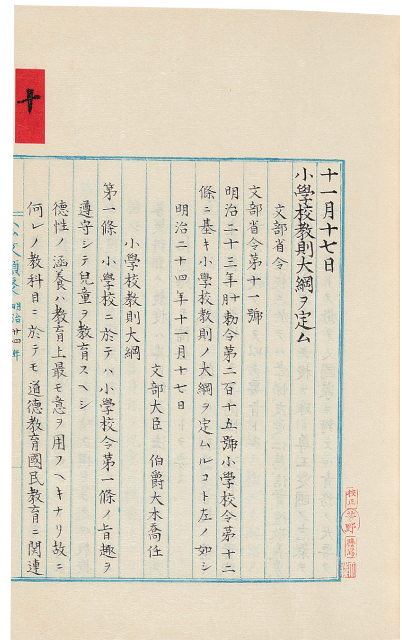 十
十一月十七日
小學校教則大綱ヲ定ム
文部省令
文部省令第十一號
明治二十三年十月勅令第二百十五號小學校令第十二
條ニ基キ小學校教則ノ大綱ヲ定ムルコト左ノ如シ
明治二十四年十一月十七日
文部大臣 伯爵大木喬任
小學校教則大綱
第一條 小學校ニ於テハ小學校令第一條ノ旨趣ヲ
遵守シテ兒童ヲ教育スヘシ
德性ノ涵養ハ教育上最モ意ヲ用フヘキナリ故ニ
何レノ教科目ニ於テモ道德教育國民教育ニ關連
公文類聚 明治廿四年
校正